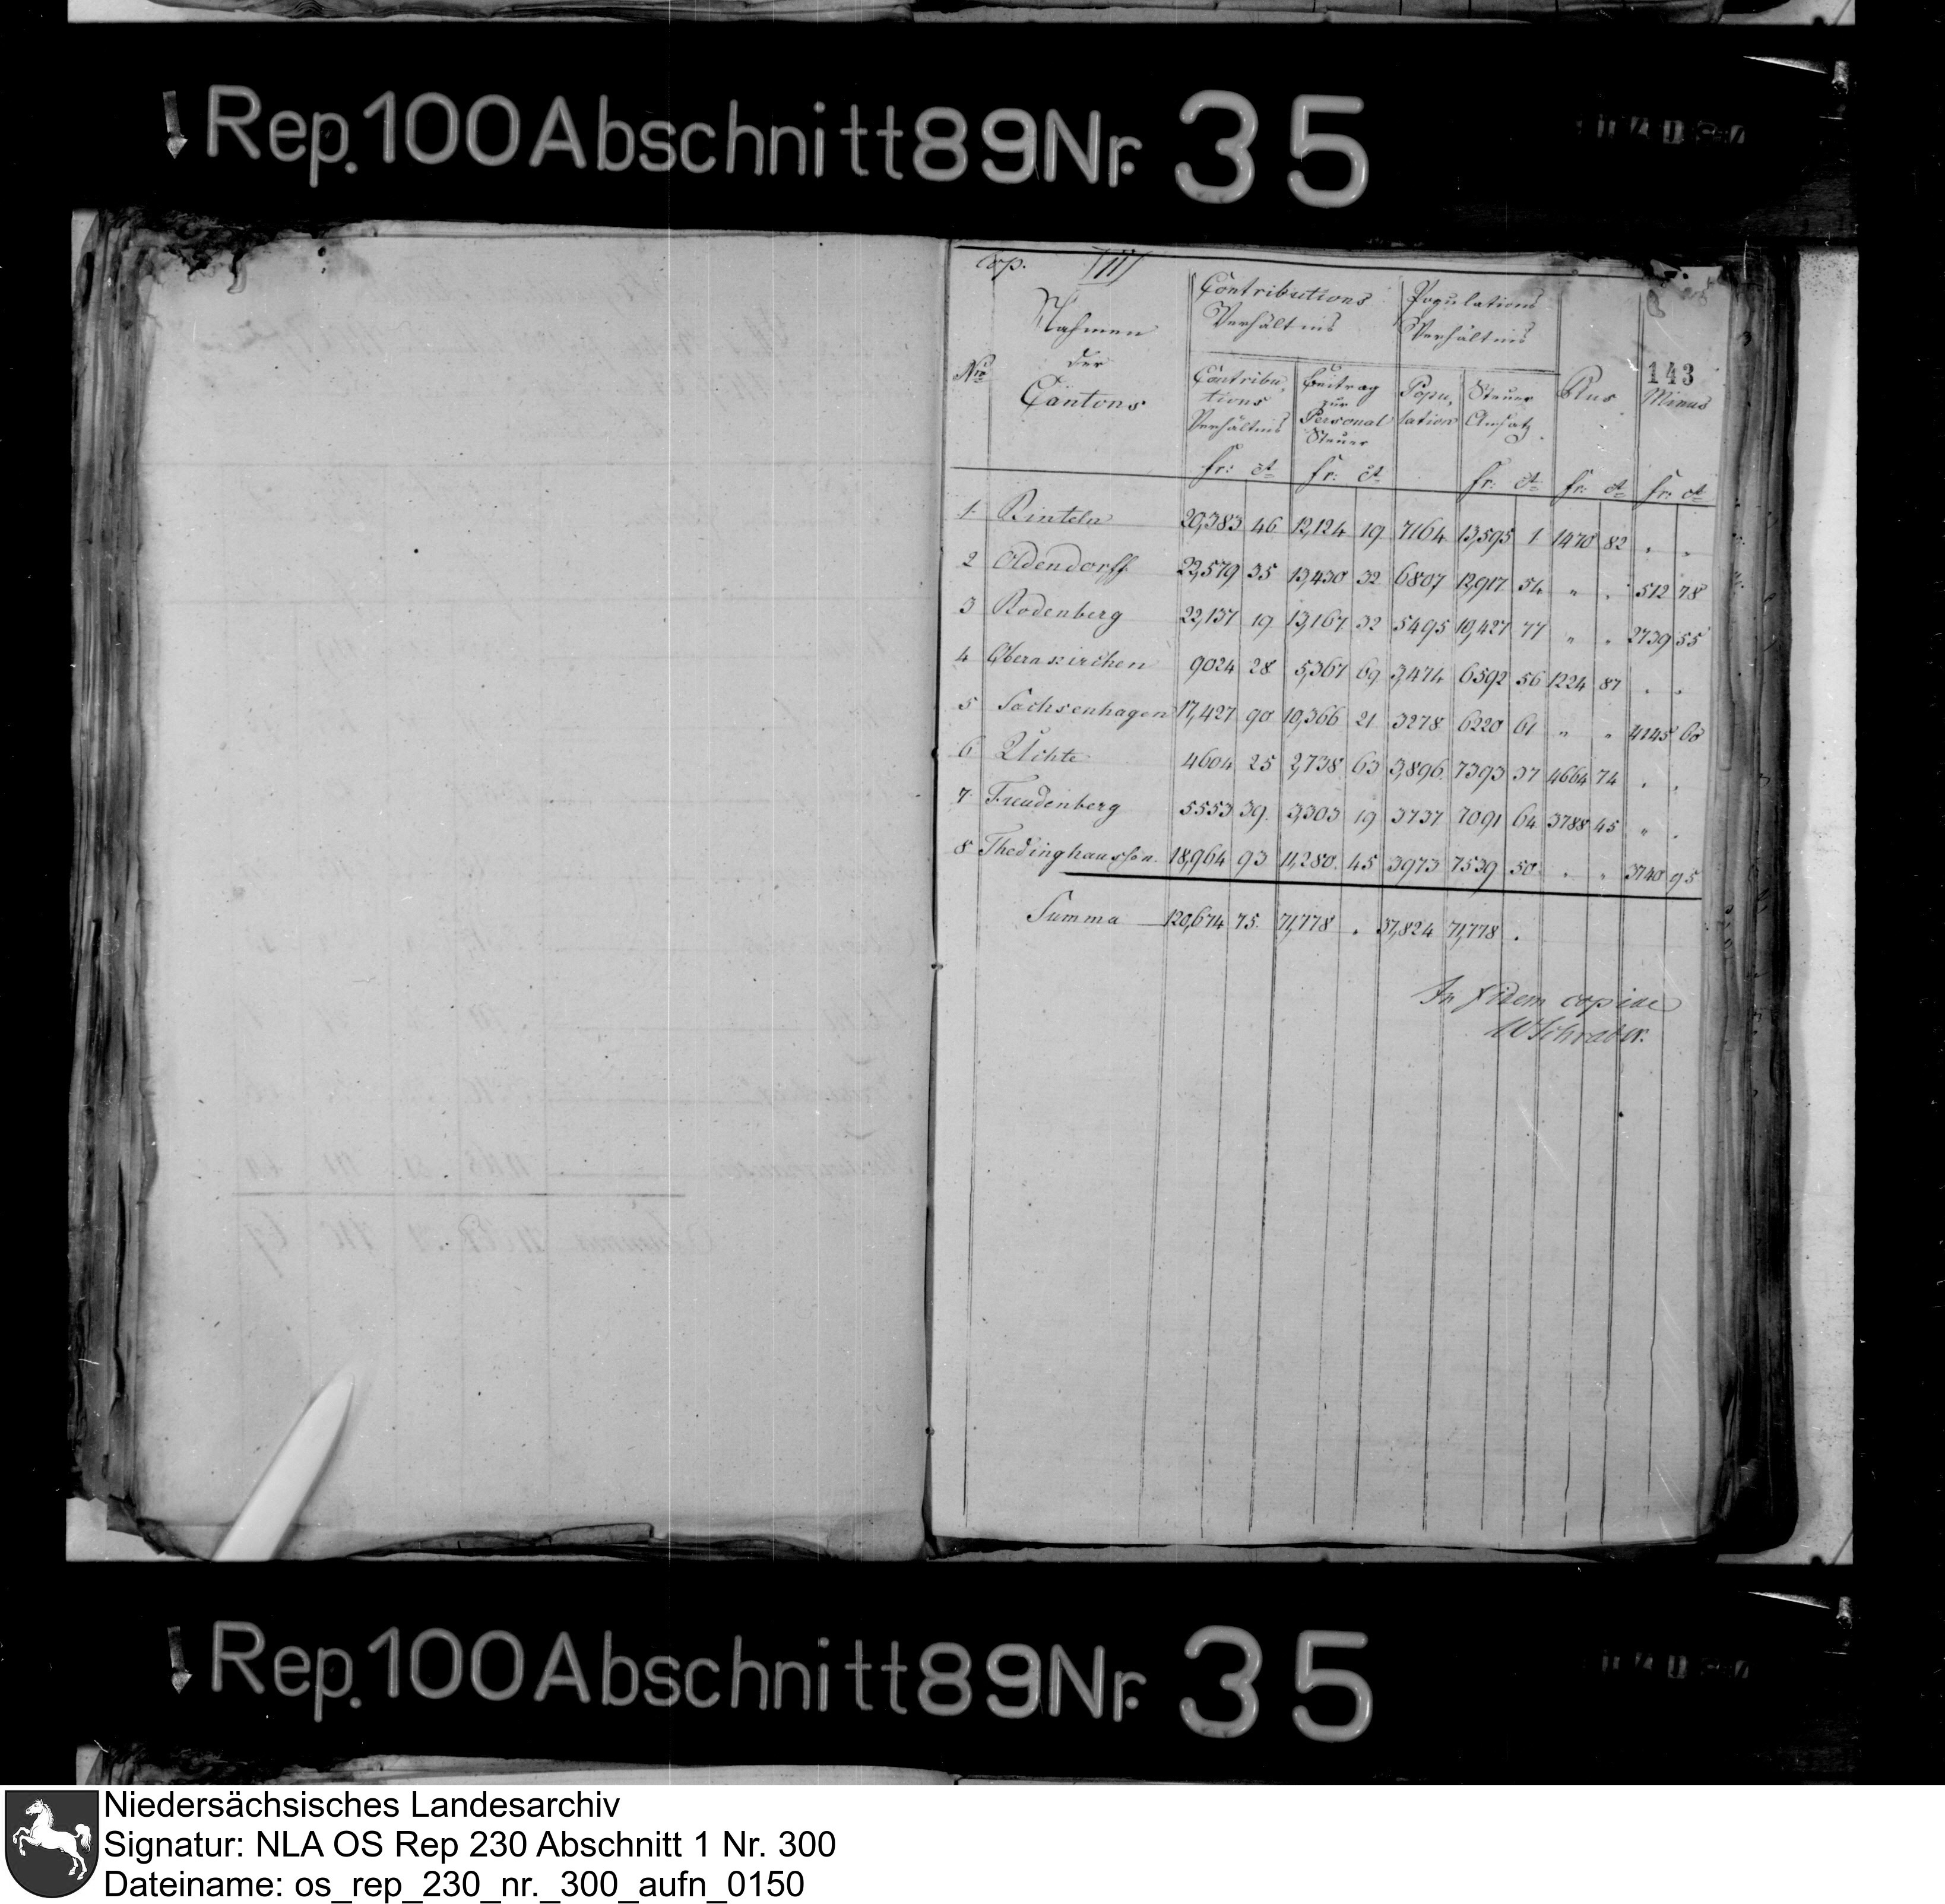 Rep. 100 Abschnitt 89 Nr. 35
cop. III
143
Nro
Nahmen
der
Cantons
Contributions
Verhältnis
Populations
Verhältnis
Contribu-
tions
Verhältnis
Beitrag
zur
Personal
Steuer
Popu-
lation
Steuer
Ansatz
Plus
Minus
fr: ct fr: ct fr: ct fr: ct fr: ct
1. Rinteln 20,383 46 12,124 19 7164 13,595 1 1470 82 " "
2 Oldendorff 22,579 35 13,430 32 6807 12,917 54 " " 512 78
3 Rodenberg 22,137 19 13,167 32 5495 10,427 77 " " 2739 55
4 Obernkirchen 9024 28 5,367 69 3,474 6592 56 1224 87 " "
5 Sachsenhagen 17,427 90 10,366 21 3278 6220 61 " " 4145 60
6 Uchte 4604 25 2,738 63 3,896 7393 37 4664 74 " "
7 Freudenberg 5553 39 3,303 19 3737 7091 64 3788 45 " "
8 Thedinghaussen 18,964 93 11,280 45 3973 7539 50 " " 3740 95
Summa 120,674 75 71,778 . 37,824 71,778 .
In fidem copiae
WSchrader.
Rep. 100 Abschnitt 89 Nr. 35
Niedersächsisches Landesarchiv
Signatur: NLA OS Rep 230 Abschnitt 1 Nr. 300
Dateiname: os_rep_230_nr._300_aufn_0150